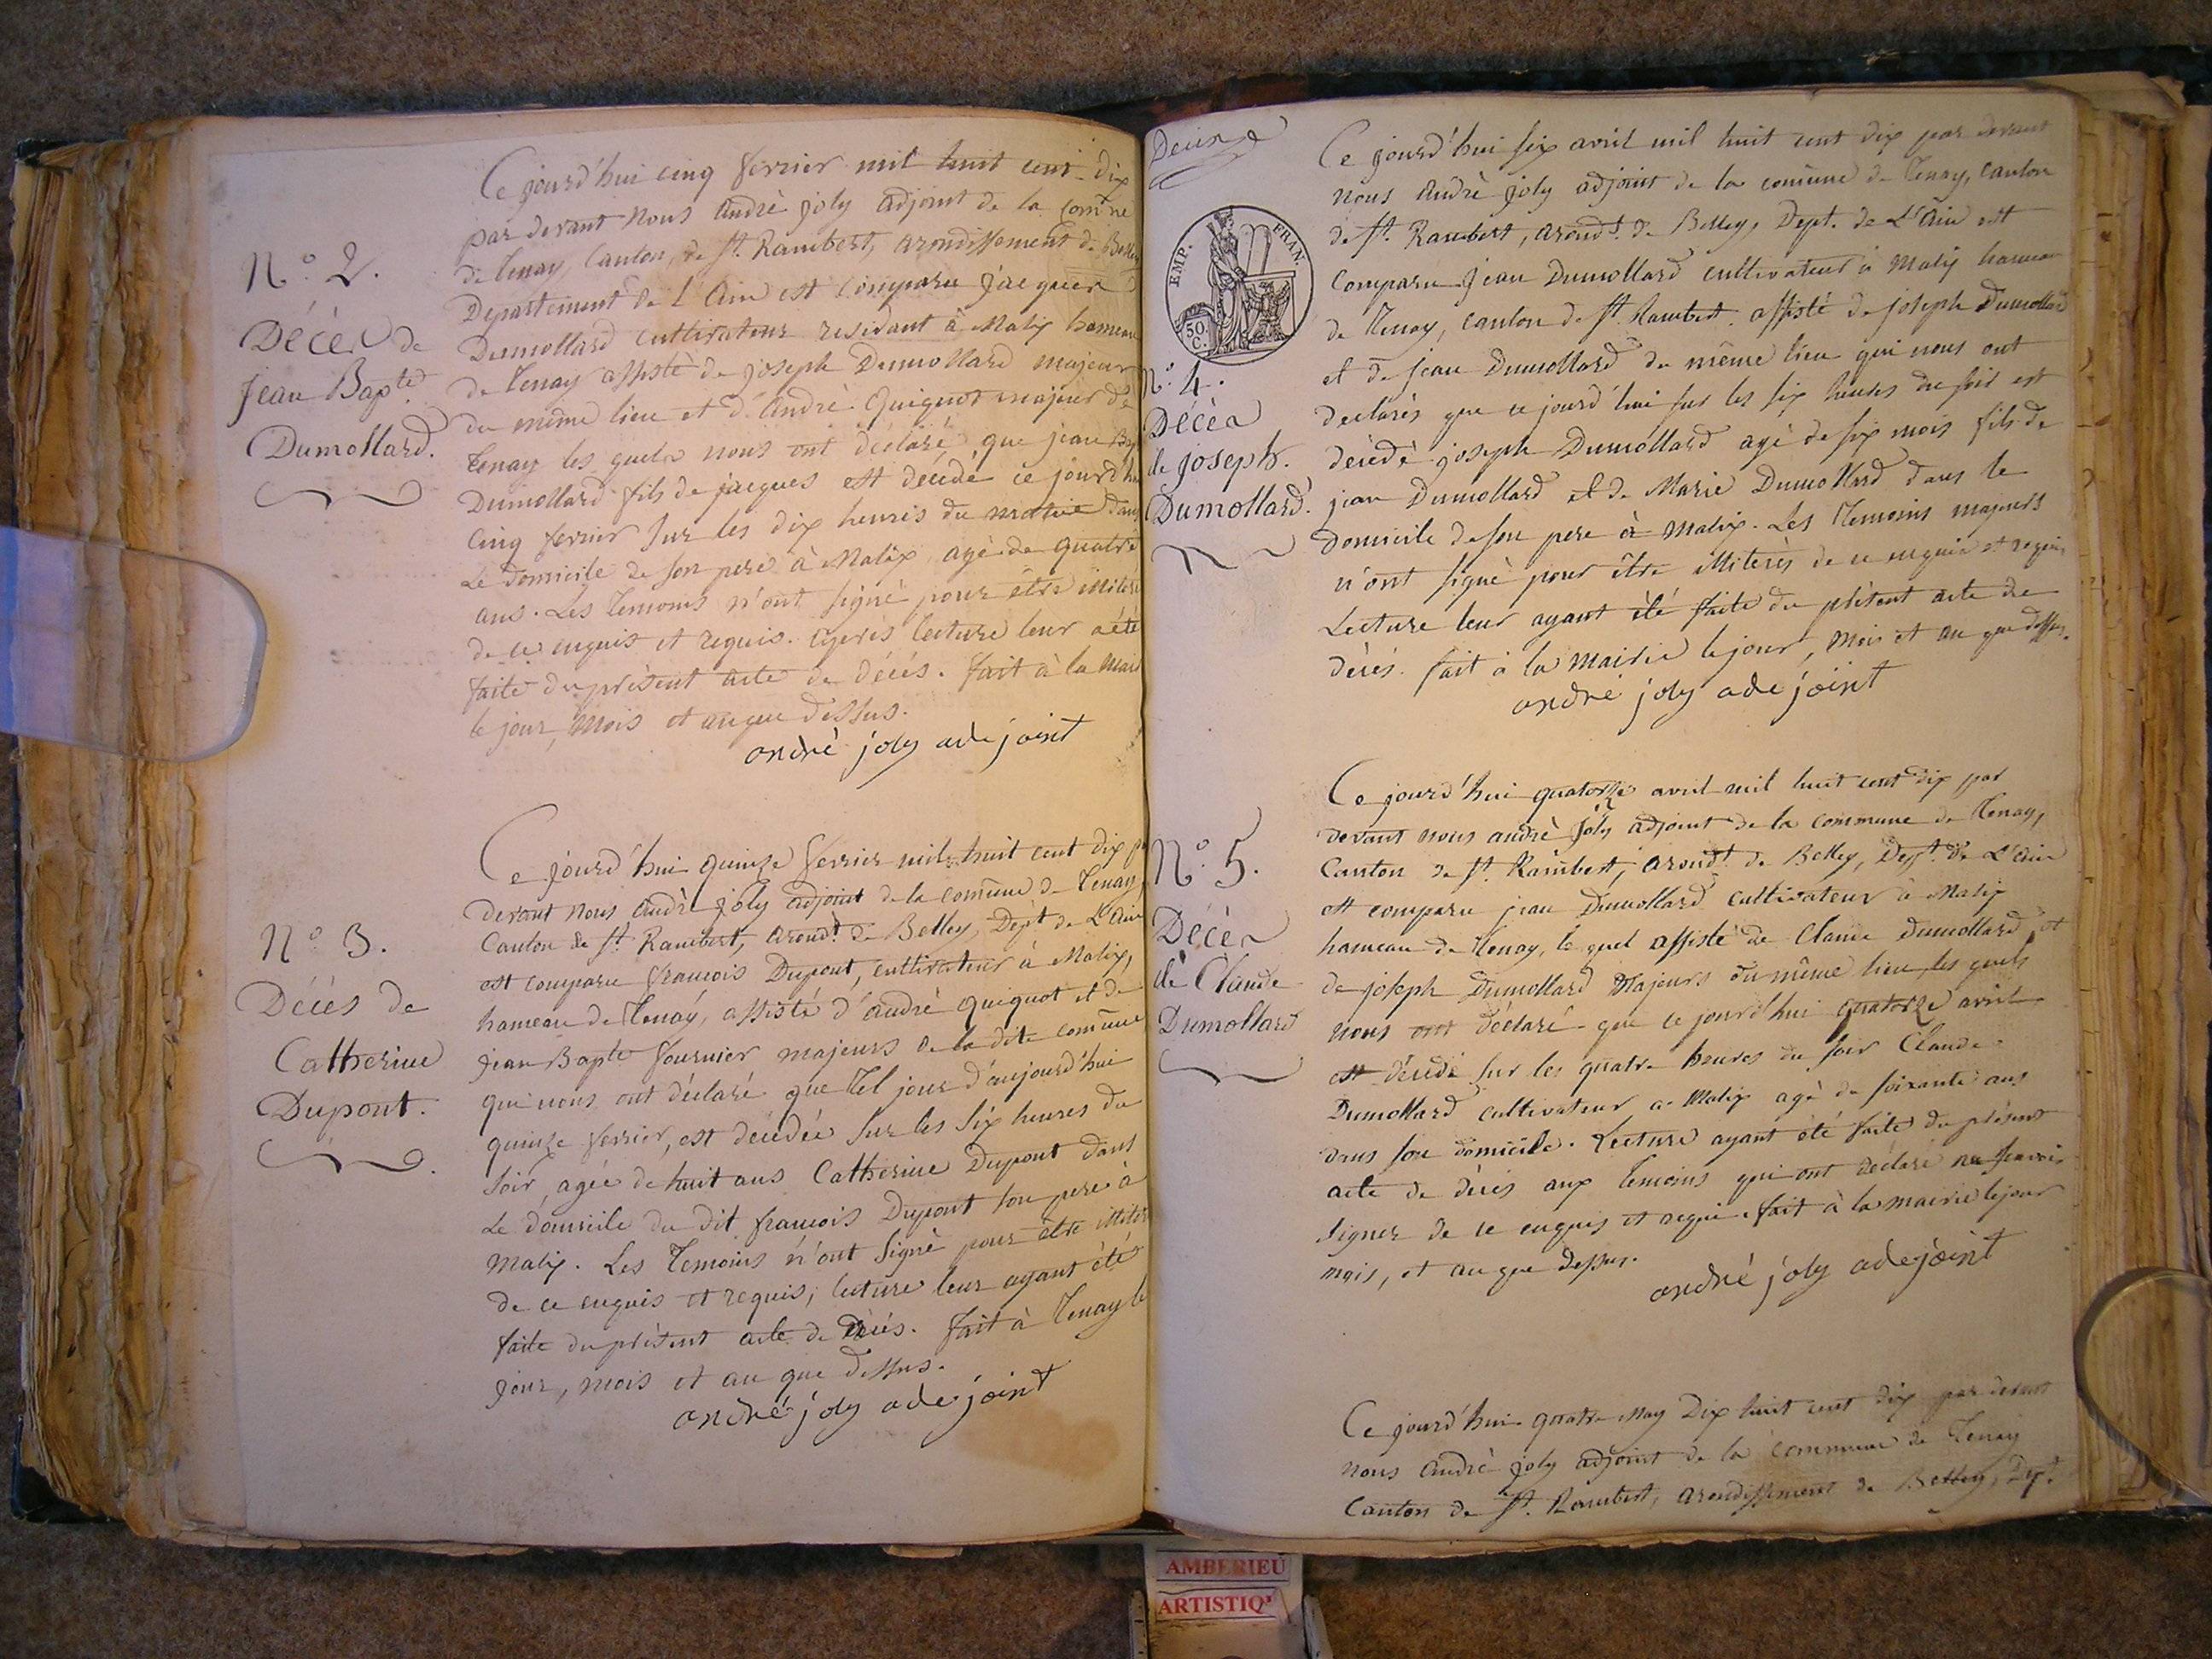 N.o 2.
Décès de
Jean Bapte
Dumollard.
Ce jourd'hui cinq fevrier mil huit cent dix
par devant nous andrè joly adjoint de la comne
de tenay, Canton, de St. Rambert, arondissement de Belley
Departement de L'Ain est comparu jacques
Dumollard cultivateur residant à Malix hameau
de tenay assistè de joseph Dumollard majeur
du même lieu et d'andrè Quignot majeur de
tenay les quels nous ont déclaré, que jean Bap
Dumollard fils de jacques est décédé ce jourd'hui
cinq fevrier sur les dix heures du matin dans
Le domicile de son pere à Malix, agé de quatre
ans. Les temoins n'ont signè pour être illiterés
de ce enquis et requis. après lecture leur a été
faite du présent acte de décés. fait à la Mairie
le jour, mois et an que dessus.
andrè joly adejoint
N.o 3.
Décés de
Catherine
Dupont.
Ce jourd'hui quinze fevrier mil huit cent dix par
devant nous andrè joly adjoint de la comune de tenay,
Canton de St. Rambert, arondt. de Belley, Dept de L'Ain
est comparu francois Dupont, cultivateur à Malix,
hameau de tenay, assisté d'andrè quignot et de
jean Bapte fournier majeurs de la dite comune
qui nous ont déclaré que tel jour d'aujourd'hui
quinze fevrier, est décédée sur les six heures du
soir, agée de huit ans Catherine Dupont dans
Le domicile du dit francois Dupont son pere à
Malix. Les temoins n'ont signè pour être illiterés
de ce enquis et requis, lecture leur ayant été
faite du présent acte de décés. fait à tenay le
jour, mois et an que dessus.
andrè joly adejoint
Deux
EMP. FRAN.
50.
C.
N.o 4.
Décès
de joseph.
Dumollard.
Ce jourd'hui six avril mil huit cent dix par devant
nous andrè joly adjoint de la comune de tenay, canton
de St. Rambert, arondt. de Belley, Dept. de L'Ain est
comparu jean Dumollard cultivateur à Malix hameau
de tenay, canton de St. Rambert. assisté de joseph Dumollard
et de jean Dumollard du même lieu qui nous ont
declarés que ce jourd'hui sur les six heures du soir est
décédé joseph Dumollard agé de six mois fils de
jean Dumollard et de Marie Dumollard dans le
domicile de son pere à Malix. Les temoins majeurs
n'ont signè pour être illiterés de ce enquis et requis
Lecture leur ayant été faite du présent acte de
décés. fait à la mairie le jour, mois et an que dessus.
andrè joly adejoint
N.o 5.
Décès
de Claude
Dumollard
Ce jourd'hui quatorze avril mil huit cent dix par
devant nous andrè joly adjoint de la commune de tenay,
Canton de St. Rambert, arondt. de Belley, Dept. de L'Ain
est comparu jean Dumollard cultivateur à Malix
hameau de tenay, le quel assisté de Claude Dumollard et
de joseph Dumollard Majeurs du même lieu les quels
nous ont déclaré que ce jourd'hui quatorze avril
est décédé sur les quatre heures du soir Claude
Dumollard cultivateur a Malix agé de soixante ans
dans son domicile. Lecture ayant été faite du présent
acte de décés aux temoins qui ont déclaré ne savoir
signer de ce enquis et requis. fait à la mairie le jour
mois, et an que dessus.
andrè joly adejoint
Ce jourd'hui quatre May Dix huit cent dix par devant
nous andrè joly adjoint de la commune de tenay
Canton de St. Rambert, arondissement de Belley, Dept.
AMBERIEU
ARTISTIQ'